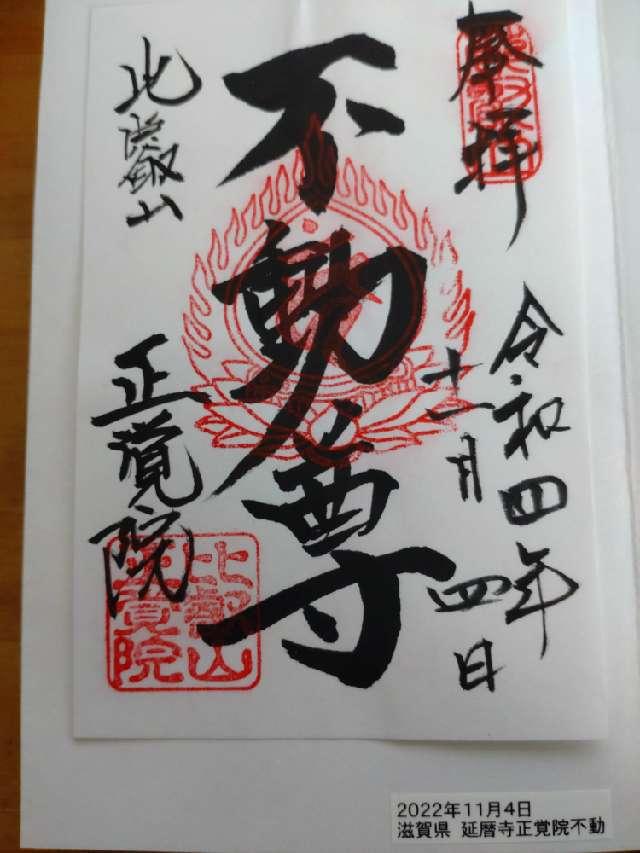 奉拝
令和四年
十一月四日
不動尊
比叡山
正覚院
比叡山
正覚院
2022年11月4日
滋賀県 延暦寺正覚院不動